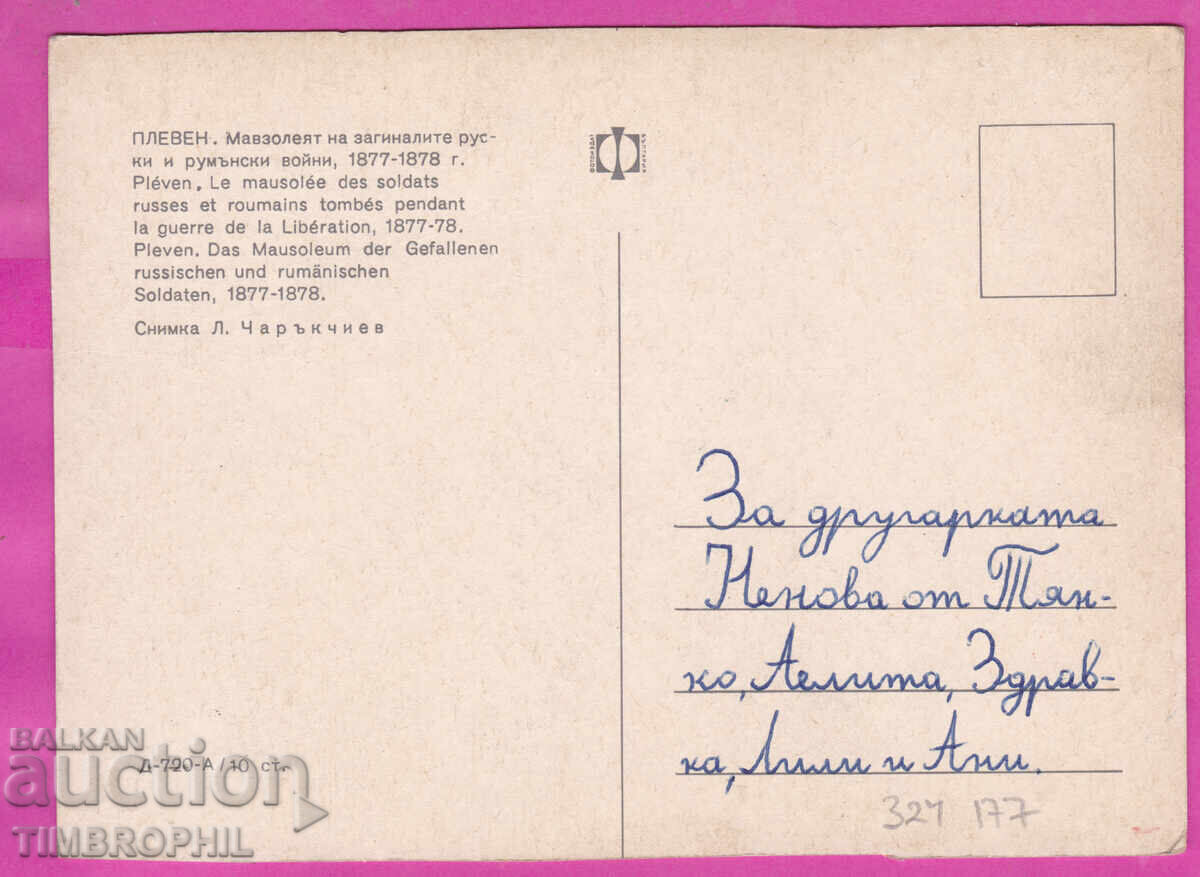 ПЛЕВЕН. Мавзолеят на загиналите рус-
ки и румънски войни, 1877-1878 г.
Pléven. Le mausolée des soldats
russes et roumains tombés pendant
la guerre de la Libération, 1877-78.
Pleven. Das Mausoleum der Gefallenen
russischen und rumänischen
Soldaten, 1877-1878.
Снимка Л. Чаръкчиев
За другарката
Ненова от Тян-
ко, Аелита, Здрав-
ка, Лили и Ани.
Д-720-А/10 ст.
324 177
BALKAN
auction
TIMBROPHIL